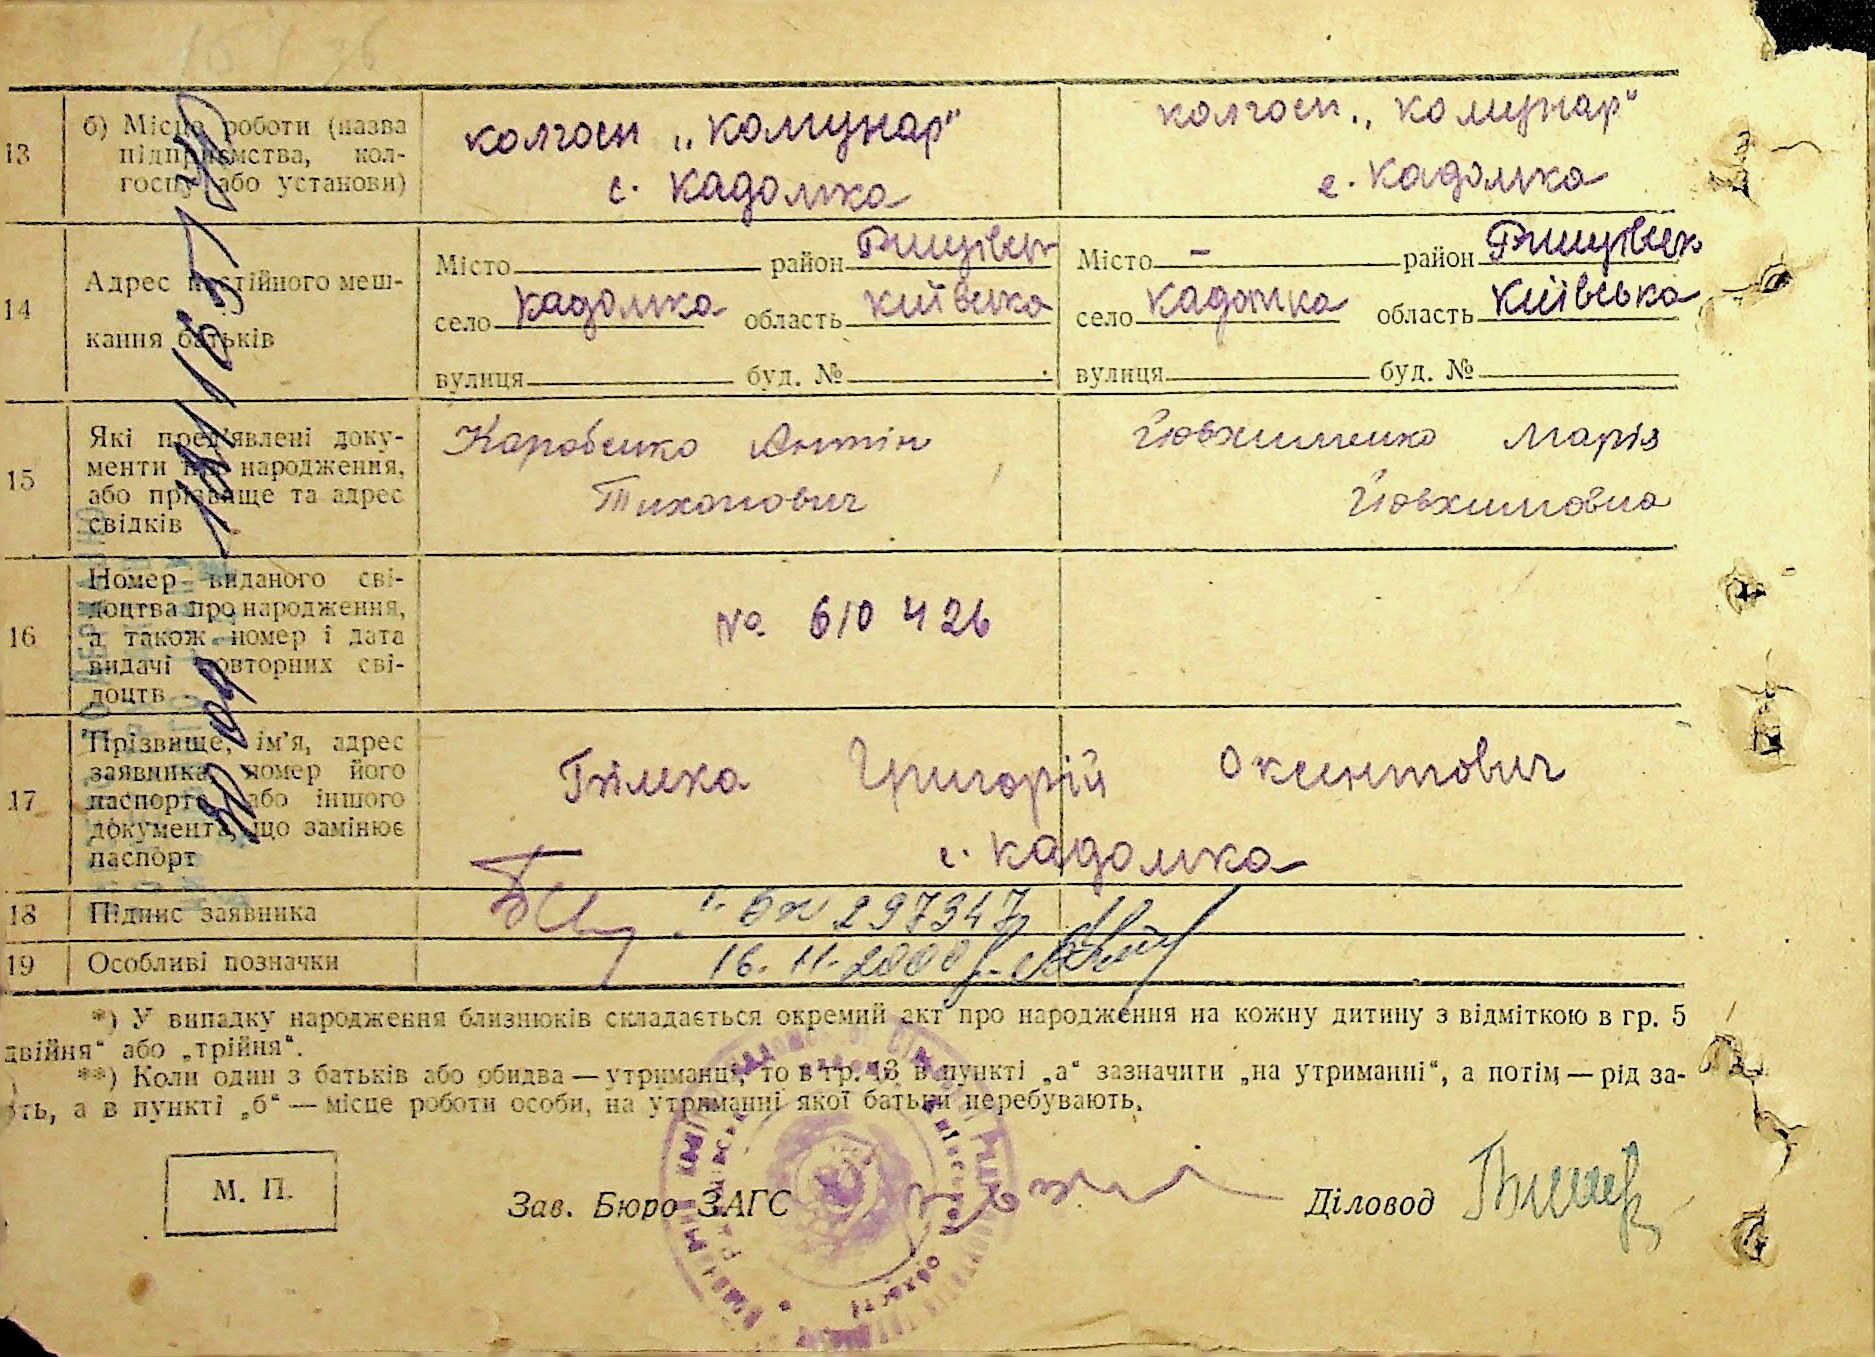 13 б) Місце роботи (назва підприємства, колгоспу або установи)
колгосп „Комунар“
с. Кадомка
колгосп „Комунар“
с. Кадомка
14 Адрес постійного меш-
кання батьків
Місто район Ржищівськ
село Кадомка область Київська
вулиця буд. №
Місто – район Ржищівськ
село Кадомка область Київська
вулиця буд. №
15 Які пред'явлені доку-
менти про народження,
або прізвище та адрес
свідків
Коробенко Антін
Тихонович
Йовхименко Марія
Йовхимовна
16 Номер виданого сві-
доцтва про народження,
а також номер і дата
видачі повторних сві-
доцтв
№ 610426
17 Прізвище, ім'я, адрес
заявника, номер його
паспорта або іншого
документа, що замінює
паспорт
Григорій
с. Кадомка
18 Підпис заявника
297347
19 Особливі позначки
16.11.2000р.
*) У випадку народження близнюків складається окремий акт про народження на кожну дитину з відміткою в гр. 5
двійня“ або „трійня“.
**) Коли один з батьків або обидва — утриманці, то в гр. 13 в пункті „а“ зазначити „на утриманні“, а потім — рід за-
ть, а в пункті „б“ — місце роботи особи, на утриманні якої батьки перебувають.
М. П.
Зав. Бюро ЗАГС
Діловод